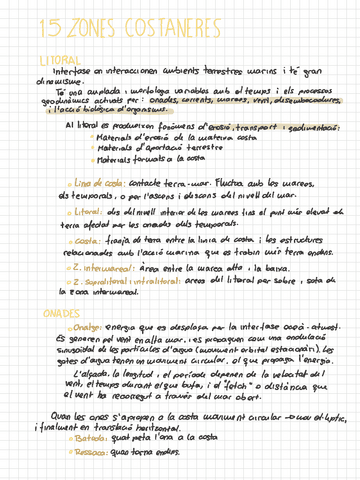 15 ZONES COSTANERES
LITORAL
Interfase on interaccionen ambients terrestres marins i té gran
dinamisme.
Té una amplada i morfologia variables amb el temps i els processos
geodinàmics activats per: onades, corrents, marees, vent, desembocadures,
i l'acció biològica d'organismes.
Al litoral es produeixen fenòmens d'erosió, transport i sedimentació:
Materials d'erosió de la mateixa costa
Materials d'aportació terrestre
Materials formats a la costa
Línia de costa: contacte terra-mar. Fluctua amb les marees,
els temporals, o per l'ascens i descens del nivell del mar.
Litoral: des del nivell inferior de les marees fins el punt més elevat de
terra afectat per les onades dels temporals.
Costa: franja de terra entre la línia de costa i les estructures
relacionades amb l'acció marina que es trobin més terra endins.
Z. Intermareal: àrea entre la marea alta i la baixa.
Z. Supralitoral i intralitoral: àrees del litoral per sobre i sota de
la zona intermareal.
ONADES
Onatge: energia que es desplaça per la interfase oceà-atmosf.
Es generen pel vent en alta mar, i es propaguen com una ondulació
sinusoidal de les partícules d'aigua (moviment orbital estacionari). Les
gotes d'aigua tenen un moviment circular, el que propaga l'energia.
L'alçada, la longitud i el període depenen de la velocitat del
vent, el temps durant el que bufa, i el "fetch" o distància que
el vent ha recorregut a través del mar obert.
Quan les ones s'apropen a la costa moviment circular → mov el·líptic,
i finalment en translació horitzontal.
Batuda: quan peta l'ona a la costa
Ressaca: quan torna endins.